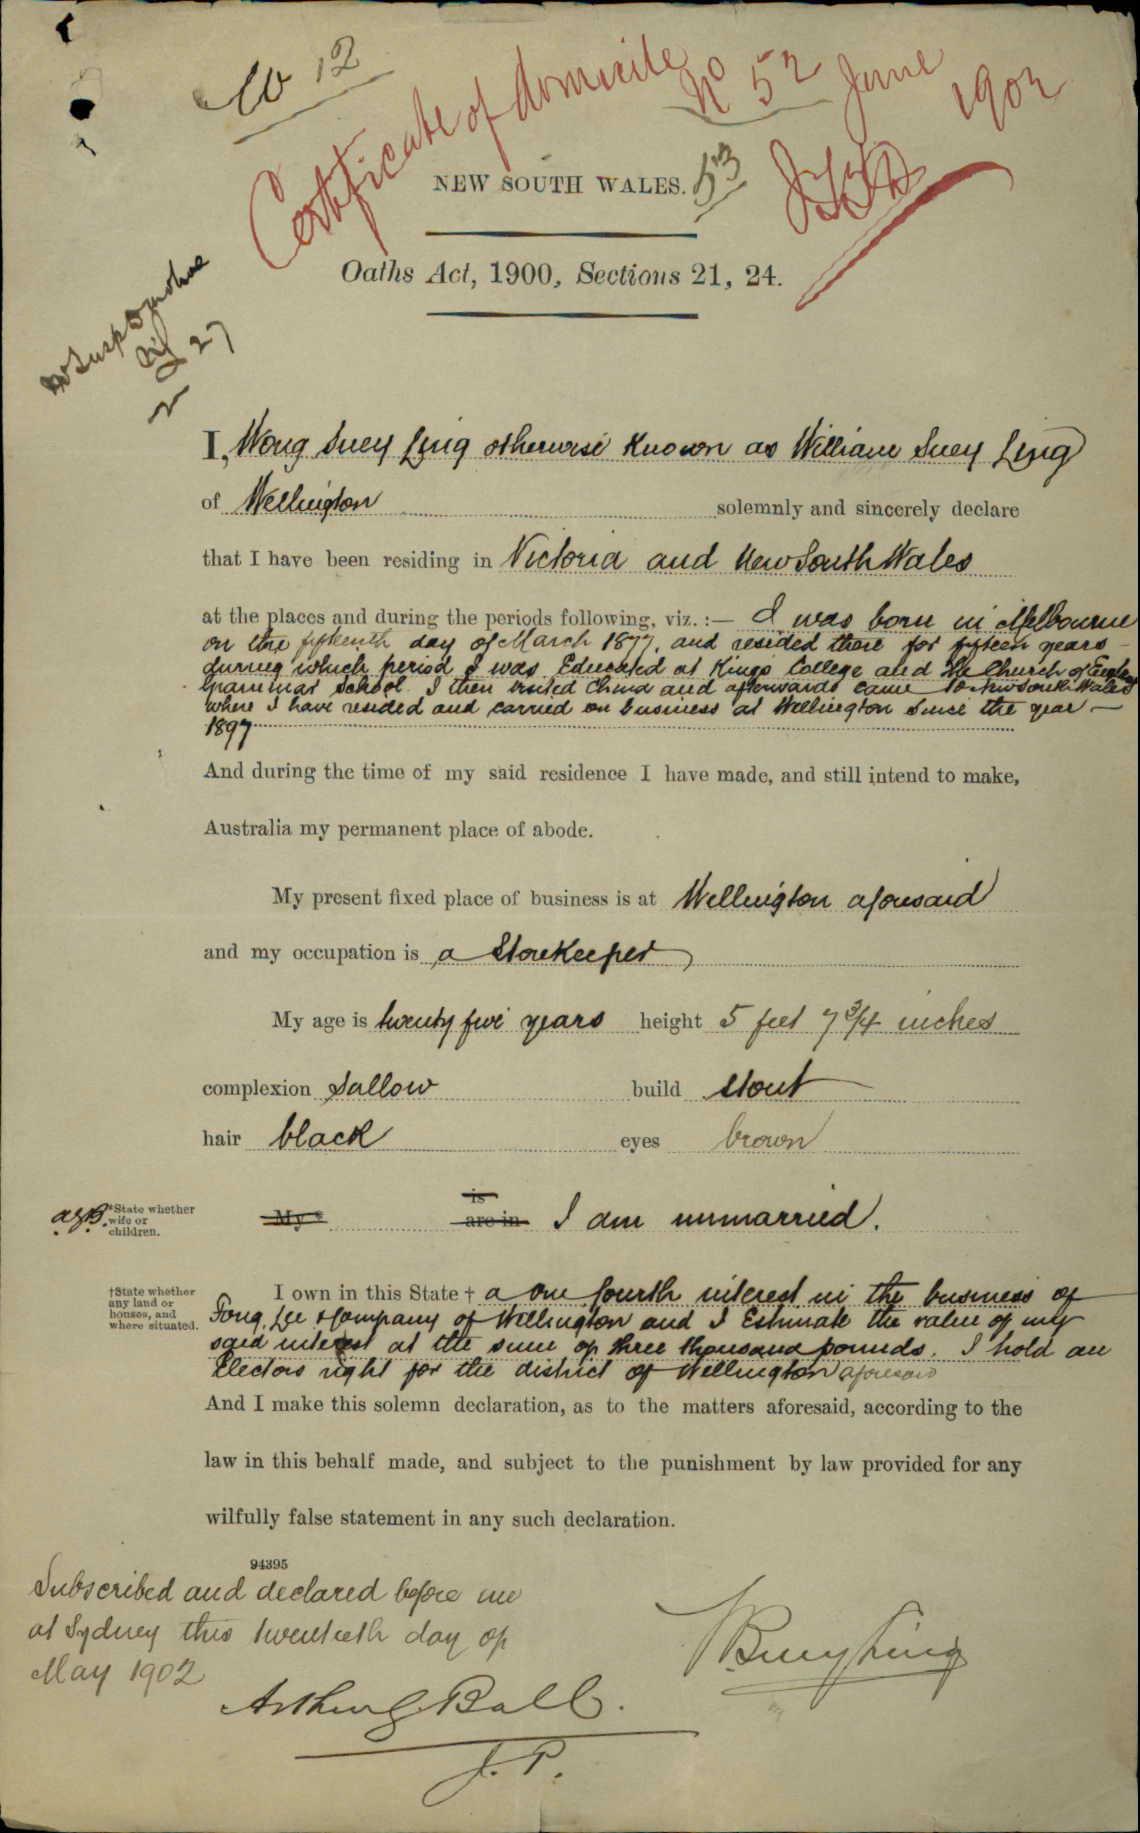 12
Certificate of domicile No 52 June 1902
NEW SOUTH WALES.
53
Oaths Act, 1900, Sections 21, 24.
27
I, Wong Suey Ling otherwise known as William Suey Ling
of Wellington solemnly and sincerely declare
that I have been residing in Victoria and New South Wales
at the places and during the periods following, viz.:— I was born in Melbourne
on the fifteenth day of March 1877, and resided there for fifteen years
during which period I was Educated at Kings College and the Church of England
Grammar School. I then visited China and afterwards came to New South Wales
where I have resided and carried on business at Wellington since the year —
1897
And during the time of my said residence I have made, and still intend to make,
Australia my permanent place of abode.
My present fixed place of business is at Wellington aforesaid
and my occupation is a Storekeeper
My age is twenty five years height 5 feet 7 3/4 inches
complexion Sallow build stout
hair black eyes brown
*State whether
wife or
children.
My * is
are in I am unmarried.
†State whether
any land or
houses, and
where situated.
I own in this State † a one fourth interest in the business of
Fong Lee & Company of Wellington and I Estimate the value of my
said interest at the sum of three thousand pounds. I hold an
Electors right for the district of Wellington aforesaid
And I make this solemn declaration, as to the matters aforesaid, according to the
law in this behalf made, and subject to the punishment by law provided for any
wilfully false statement in any such declaration.
94395
Subscribed and declared before me
at Sydney this twentieth day of
May 1902
W Suey Ling
Arthur G. Ball.
J. P.